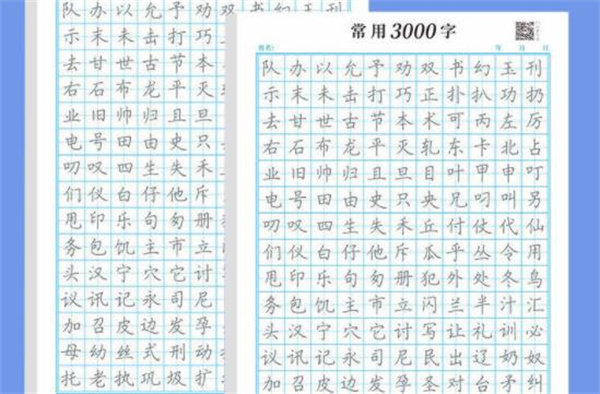 队办以允予劝双书幻玉刊
示末未击打巧
去甘世古节本
右石布龙平灭
业旧帅归且旦
电号田由史只
叨叹四生失禾
们仪白仔他斥
甩印乐句匆册
务包饥主市立
头汉宁穴它讨
议讯记永司尼
加召皮边发孕
母幼丝式刑动
托老执巩圾扩
常用3000字
姓名: 年 月 日
队办以允予劝双书幻玉刊
示末未击打巧正扑扒功扔
去甘世古节本术可丙左厉
右石布龙平灭轧东卡北占
业旧帅归且旦目叶甲申叮
电号田由史只央兄叼叫另
叨叹四生失禾丘付仗代仙
们仪白仔他斥瓜乎丛令用
甩印乐句匆册犯外处冬鸟
务包饥主市立闪兰半汁汇
头汉宁穴它讨写让礼训必
议讯记永司尼民出辽奶奴
加召皮边发孕圣对台矛纠